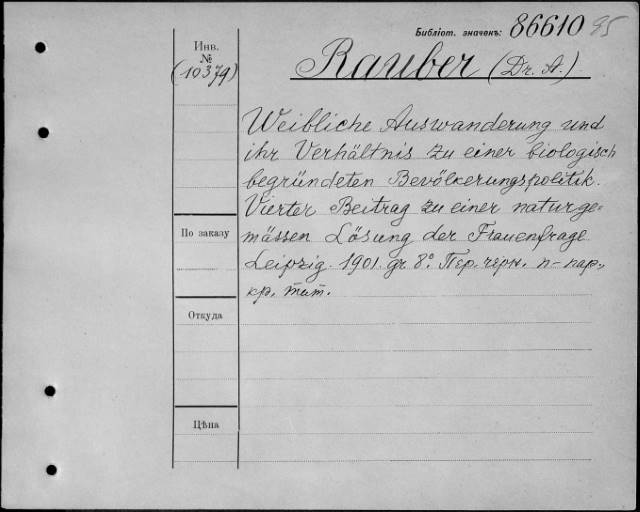 Библіот. значекъ: 86610 95
Инв.
№
(10379)
Rauber (Dr. A.)
Weibliche Auswanderung und
ihr Verhältnis zu einer biologisch
begründeten Bevölkerungspolitik.
Vierter Beitrag zu einer naturge-
mässen Lösung der Frauenfrage
Leipzig. 1901. gr 8° Пер. черн. п-пар.,
кр. тит.
По заказу
Откуда
Цѣна